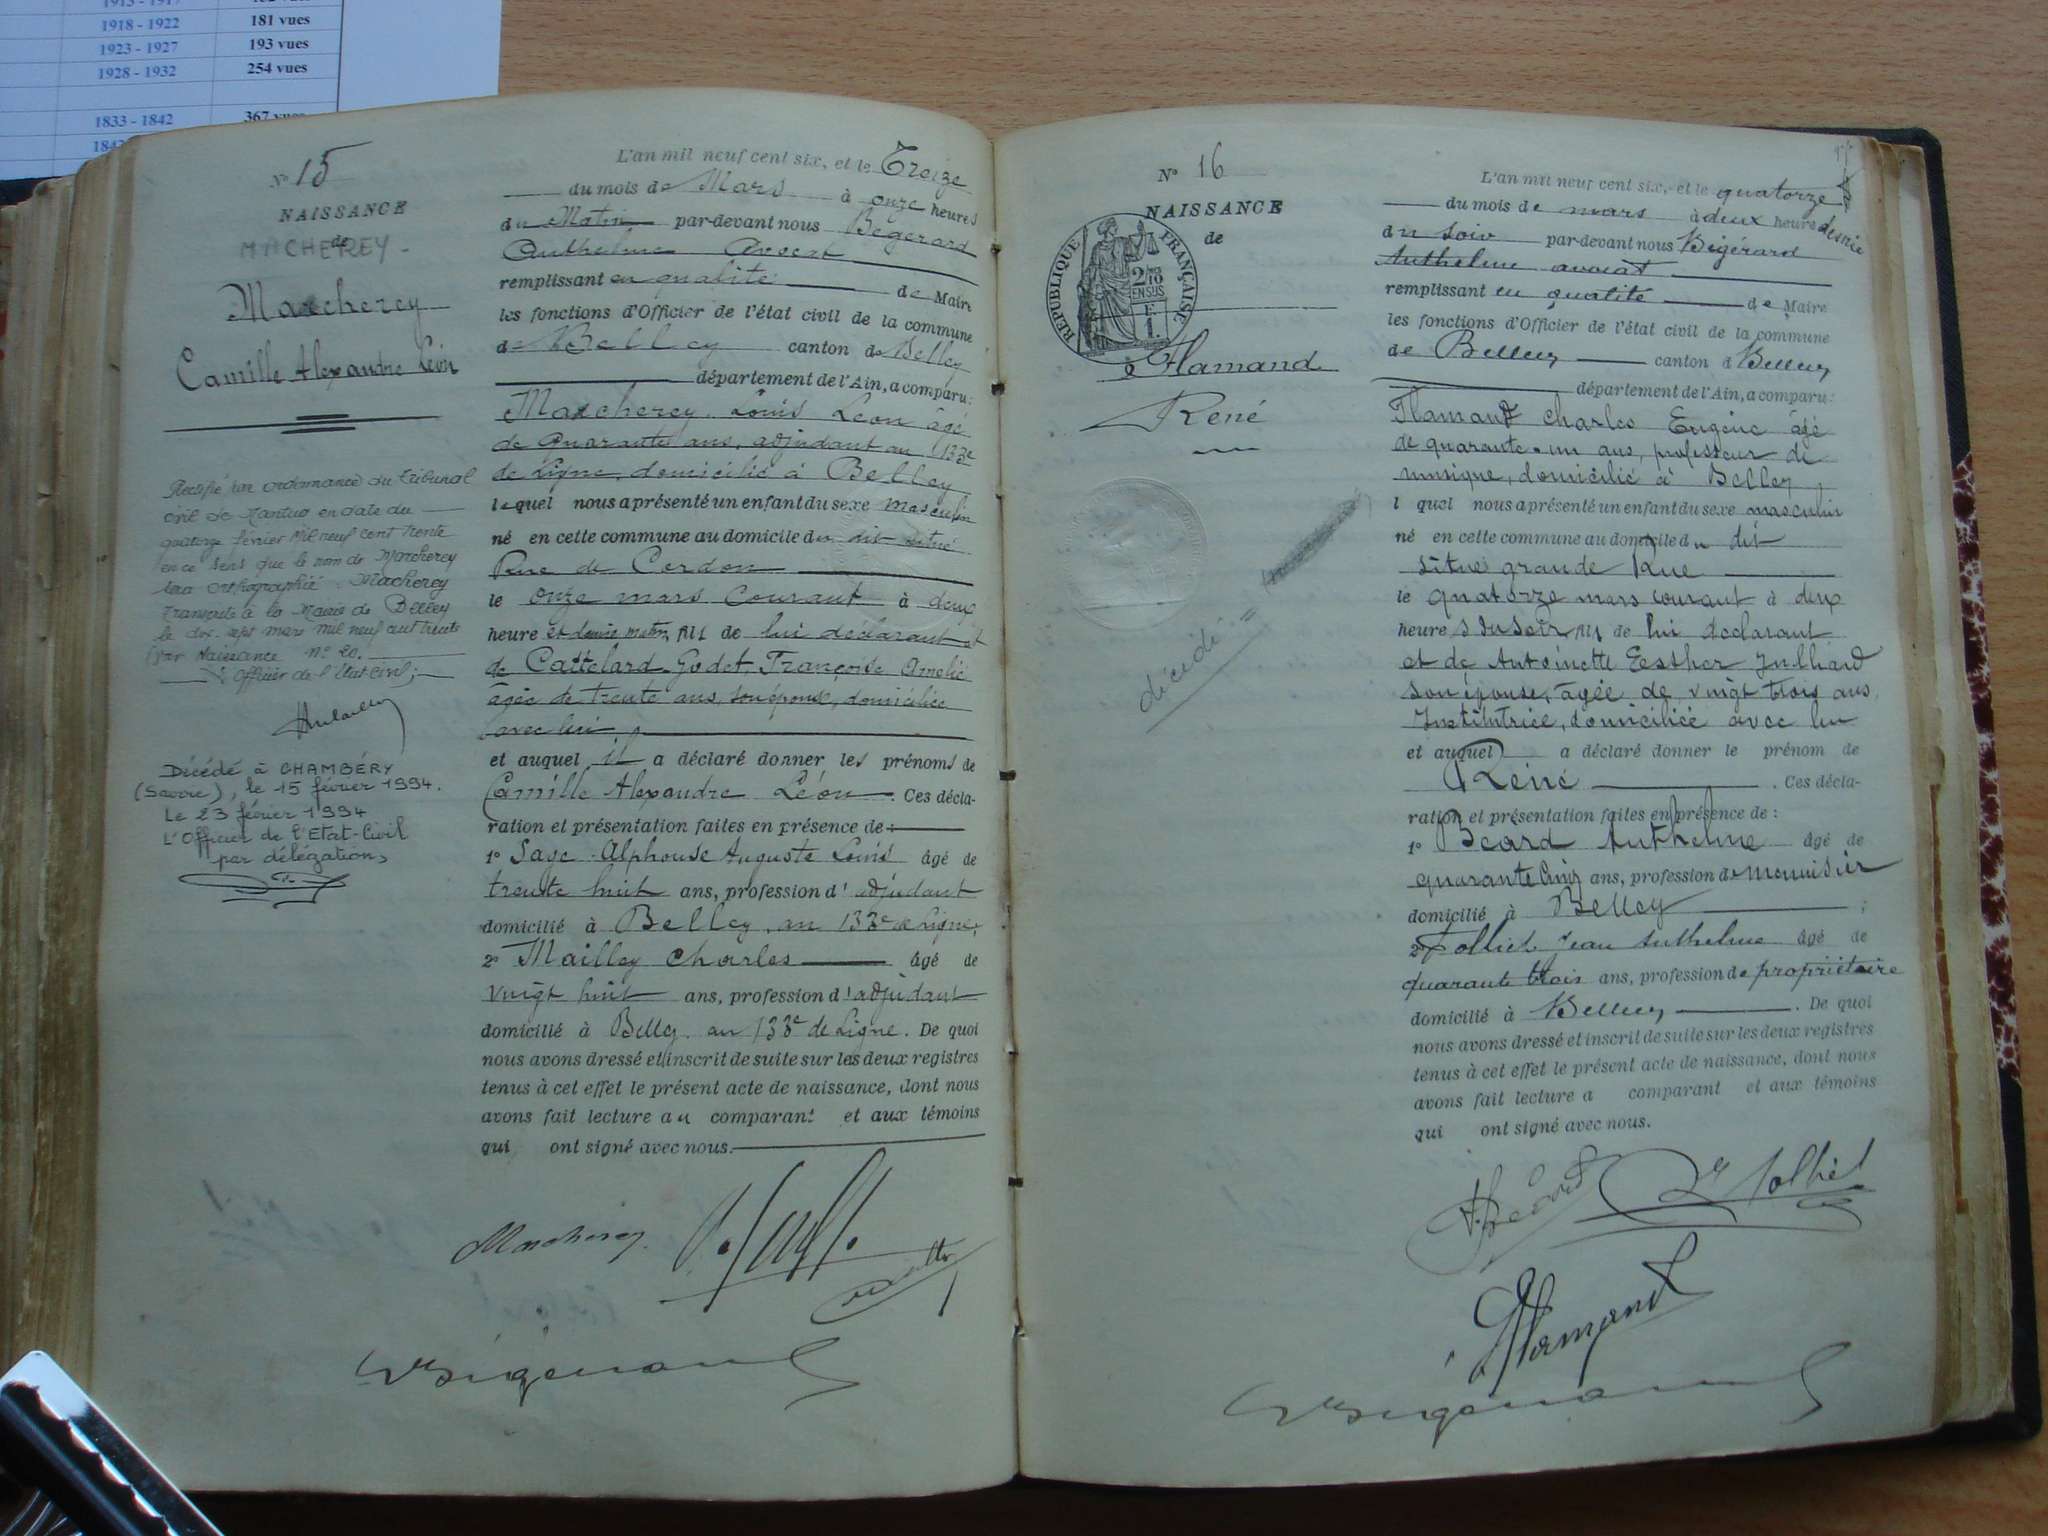 1918 - 1922 181 vues
1923 - 1927 193 vues
1928 - 1932 254 vues
1833 - 1842 367 vues
N° 15
NAISSANCE
de
MACHEREY
Marcherey
Camille Alexandre Léon
Rectifié par ordonnance du tribunal
civil de Nantua en date du
quatorze février mil neuf cent trente
en ce sens que le nom de Marcherey
sera orthographié : Macherey
Transcrite à la Mairie de Belley
le dix sept mars mil neuf cent trente
par Naissance n° 20.
L'Officier de l'État civil :
Décédé à CHAMBÉRY
(Savoie), le 15 février 1994.
Le 23 février 1994
L'Officier de l'Etat-Civil
par délégation,
L'an mil neuf cent six, et le Treize
du mois de Mars à onze heures
du Matin par-devant nous Bégérard
Anthelme Avocat
remplissant en qualité de Maire
les fonctions d'Officier de l'état civil de la commune
de Belley canton de Belley
département de l'Ain, a comparu:
Marcherey Louis Léon âgé
de quarante ans, adjudant au 133e
de Ligne, domicilié à Belley
lequel nous a présenté un enfant du sexe masculin
né en cette commune au domicile du dit situé
Rue de Cerdon
le onze mars courant à deux
heure et demie matin, fils de lui déclarant et
de Cattelard-Godet, Françoise Amélie
âgée de trente ans, son épouse, domiciliée
avec lui,
et auquel il a déclaré donner les prénoms de
Camille Alexandre Léon. Ces décla-
ration et présentation faites en présence de :
1° Sage Alphonse Auguste Louis âgé de
trente huit ans, profession d'adjudant
domicilié à Belley, au 133e de Ligne;
2° Mailley Charles âgé de
vingt huit ans, profession d'adjudant
domicilié à Belley au 133e de Ligne. De quoi
nous avons dressé et inscrit de suite sur les deux registres
tenus à cet effet le présent acte de naissance, dont nous
avons fait lecture au comparant et aux témoins
qui ont signé avec nous.
Marcherey
Bégérard
N° 16
NAISSANCE
de
RÉPUBLIQUE FRANÇAISE
2/10
EN SUS
F.
1.
Flamand
René
décidé =
L'an mil neuf cent six, et le quatorze
du mois de mars à deux heures demie
du soir par-devant nous Bégérard
Anthelme avocat
remplissant en qualité de Maire
les fonctions d'Officier de l'état civil de la commune
de Belley canton d Belley
département de l'Ain, a comparu:
Flamand Charles Eugène âgé
de quarante-un ans, professeur de
musique, domicilié à Belley,
l quel nous a présenté un enfant du sexe masculin
né en cette commune au domicile du dit
situé grande Rue
le quatorze mars courant à deux
heures du soir, fils de lui déclarant
et de Antoinette Eesther Julliard
son épouse, âgée de vingt trois ans
Institutrice, domiciliée avec lui
et auquel a déclaré donner le prénom de
René. Ces décla-
ration et présentation faites en présence de :
1° Béard Anthelme âgé de
quarante cinq ans, profession de menuisier
domicilié à Belley ;
2° Folliet Jean Anthelme âgé de
quarante trois ans, profession de propriétaire
domicilié à Belley. De quoi
nous avons dressé et inscrit de suite sur les deux registres
tenus à cet effet le présent acte de naissance, dont nous
avons fait lecture a comparant et aux témoins
qui ont signé avec nous.
A. Béard Folliet
Flamand
Bégérard